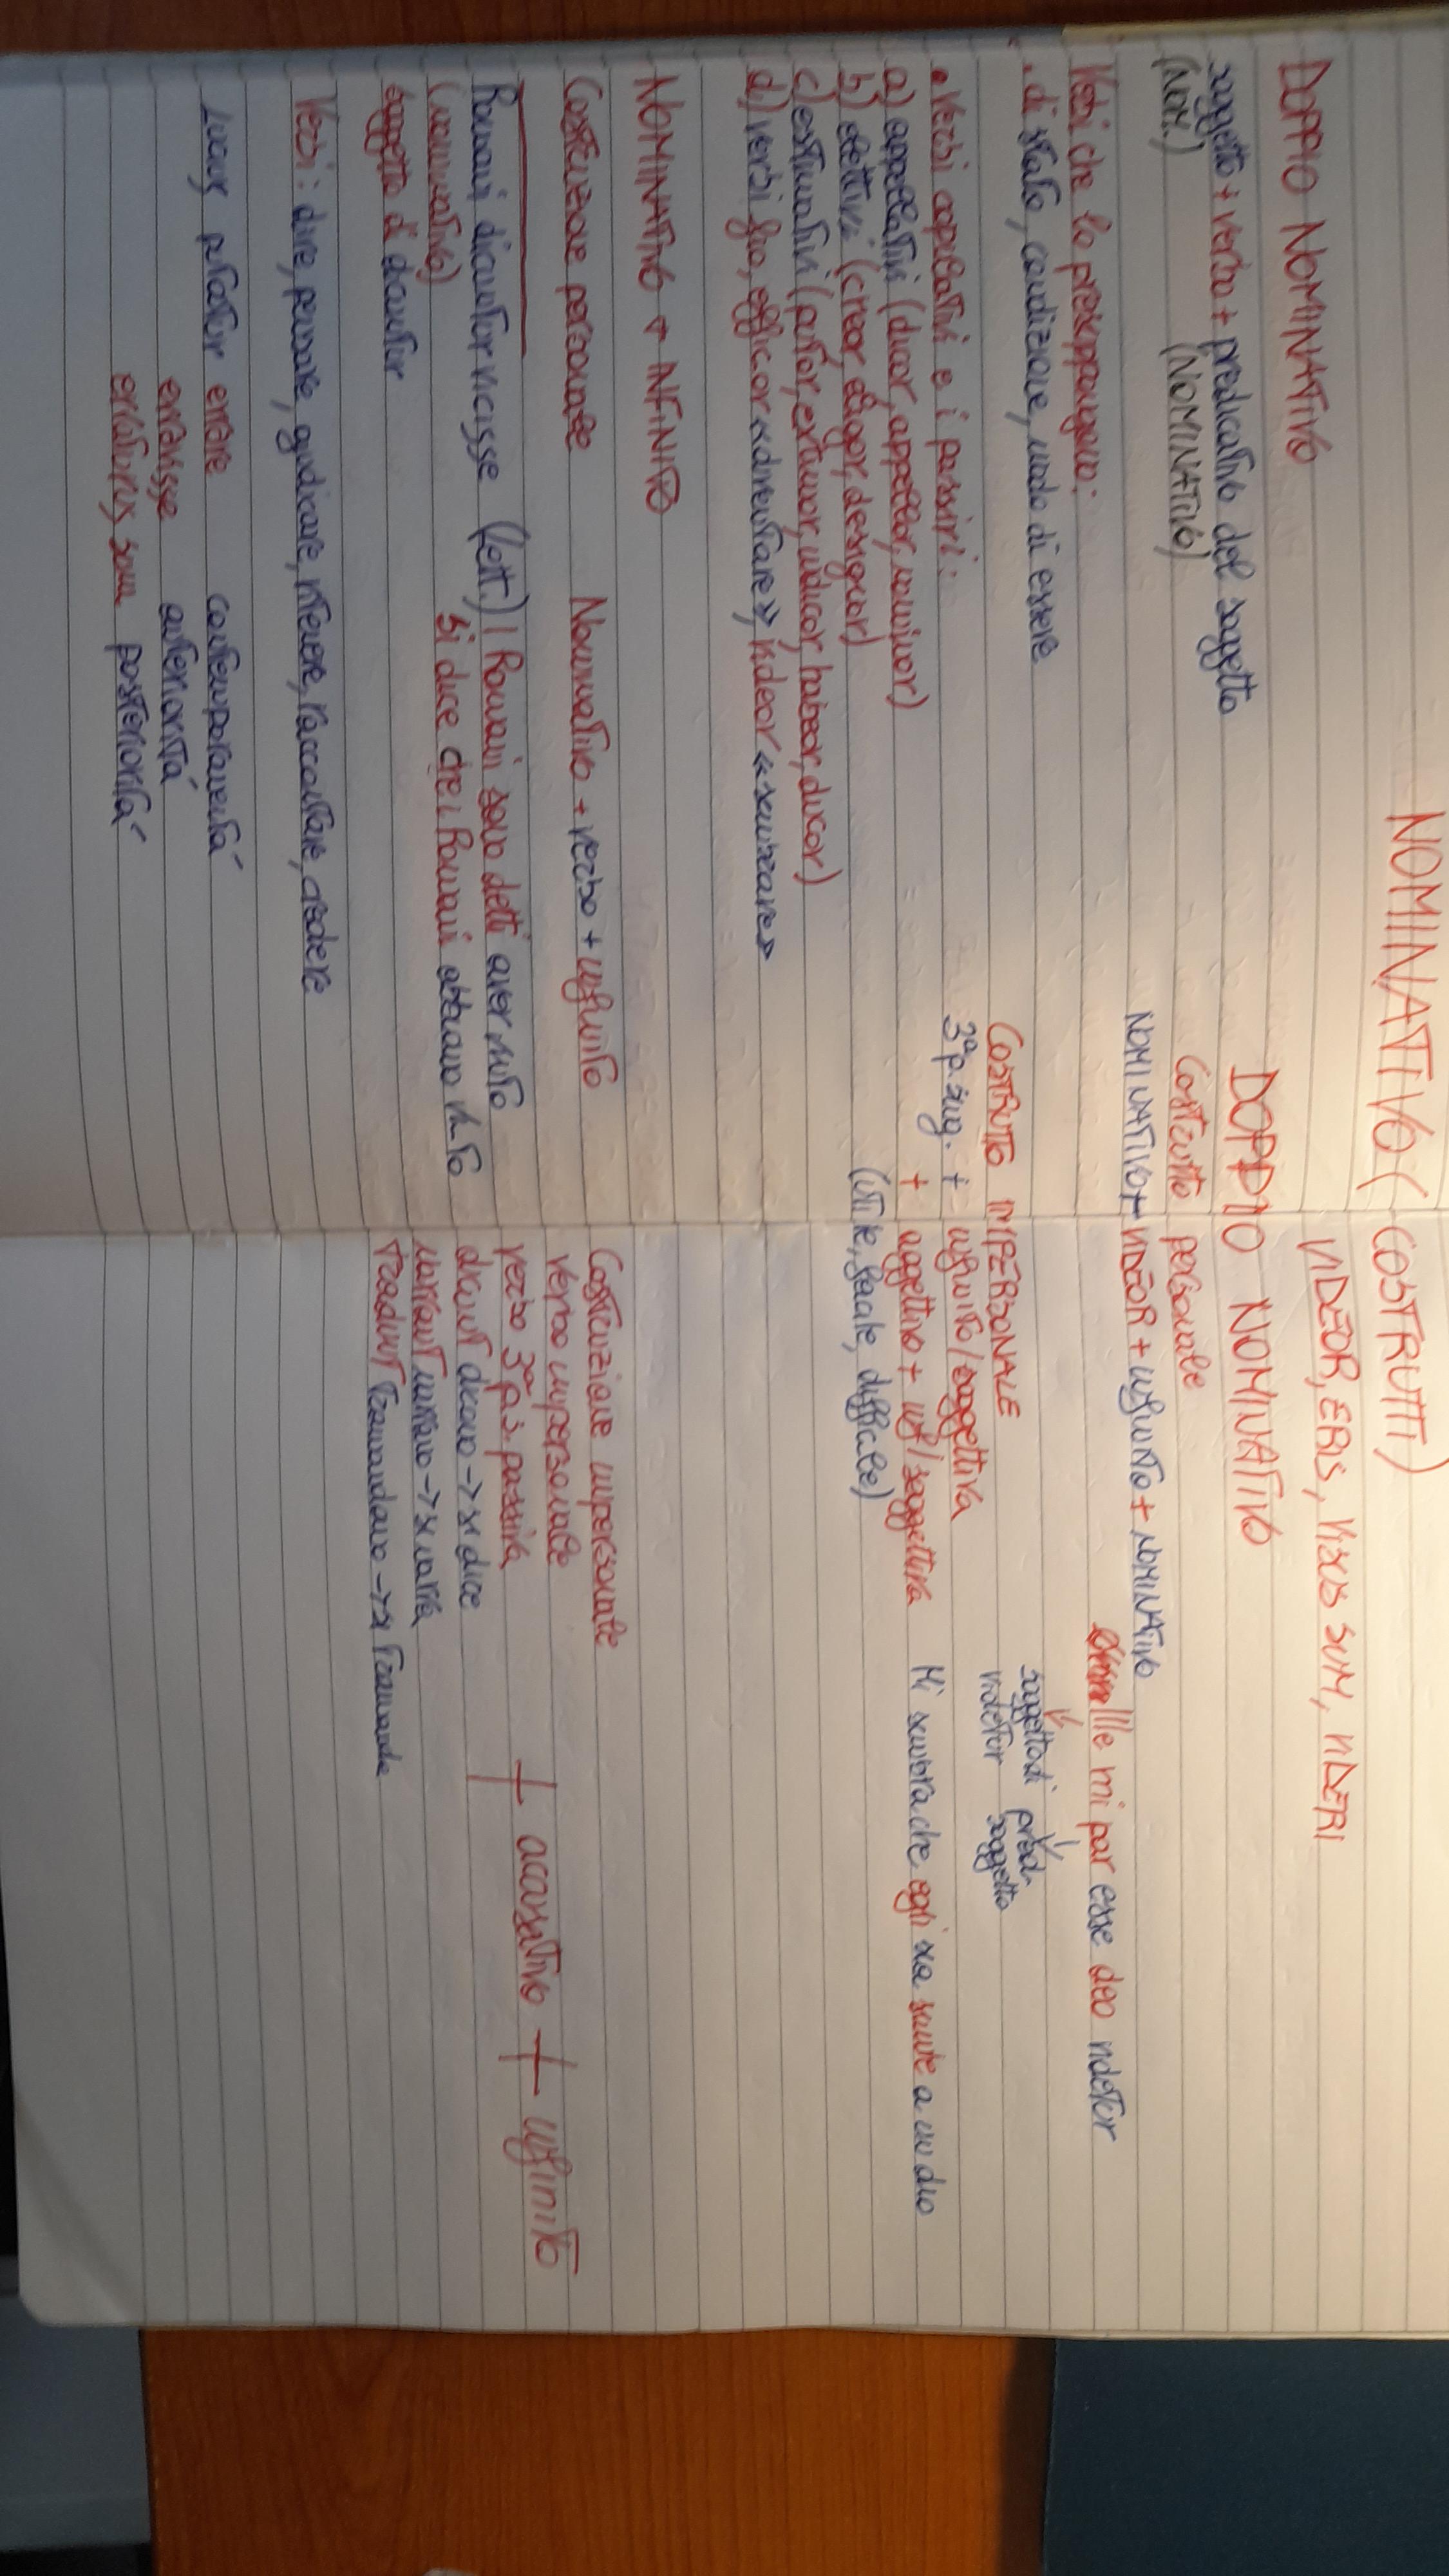 NOMINATIVO (COSTRUTTI)
DOPPIO NOMINATIVO
soggetto + verbo + predicativo del soggetto
(NOM.) (NOMINATIVO)
Verbi che lo presuppongono:
• di stato, condizione, modo di essere
• Verbi copulativi e i passivi:
a) appellativi (dicor, appellor, nominor)
b) elettivi (creor, eligor, designor)
c) estimativi (putor, extimor, iudicor, habeor, ducor)
d) verbi fio, efficior «diventare», videor «sembrare»
NOMINATIVO + INFINITO
Costruzione personale Nominativo + verbo + infinito
Romani dicuntur vicisse (lett.) I Romani sono detti aver vinto
(nominativo) si dice che i Romani abbiano vinto
soggetto di dicuntur
Verbi: dire, pensare, giudicare, ritenere, raccontare, credere
Lucius putatur errare contemporaneità
erravisse anteriorità
eraturus sum posteriorità
VIDEOR, ERIS, VISUS SUM, VIDERI
DOPPIO NOMINATIVO
Costrutto personale
NOMINATIVO + VIDEOR + infinito + NOMINATIVO
Ille mi par esse deo videtur
soggetto di pred.
videtur soggetto
COSTRUTTO IMPERSONALE
3ª p. sing. + infinito / soggettiva
+ aggettivo + inf / soggettiva Mi sembra che egli sia simile a un dio
(utile, facile, difficile)
Costruzione impersonale
Verbo impersonale
verbo 3ª p.s. passiva + accusativo + infinito
dicunt dicono -> si dice
narrant narrano -> si narra
tradunt tramandano -> si tramanda